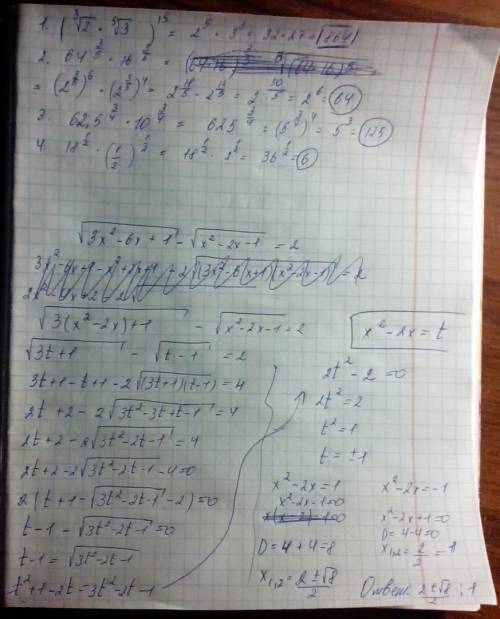 1. (∛2 · ⁵√3)¹⁵ = 2⁵ · 3³ = 32 · 27 = 864
2. 64^(2/5) · 16^(2/5) =
= (2^(2/5))⁶ · (2^(2/5))⁴ = 2^(12/5) · 2^(8/5) = 2^(20/5) = 2⁶ = 64
3. 62,5^(3/4) · 10^(3/4) = 625^(3/4) = (5^(3/4))⁴ = 5³ = 125
4. 18^(1/2) · (1/2)^(-1/2) = 18^(1/2) · 2^(1/2) = 36^(1/2) = 6
√(3x²-6x+1) - √(x²-2x-1) = 2
√(3(x²-2x)+1) - √(x²-2x-1) = 2
x²-2x = t
√(3t+1) - √(t-1) = 2
3t+1-t+1-2√((3t+1)(t-1)) = 4
2t+2-2√(3t²-3t+t-1) = 4
2t+2-2√(3t²-2t-1) = 4
2t+2-2√(3t²-2t-1)-4=0
2(t+1-√(3t²-2t-1)-2)=0
t-1-√(3t²-2t-1)=0
t-1=√(3t²-2t-1)
t²+1-2t-3t²-2t-1
2t²-2=0
2t²=2
t²=1
t=±1
x²-2x=1
x²-2x-1=0
D=4+4=8
x₁,₂=(2±√8)/2
x²-2x=-1
x²-2x+1=0
D=4-4=0
x₁,₂=2/2=1
Ответ: (2±√8)/2; 1